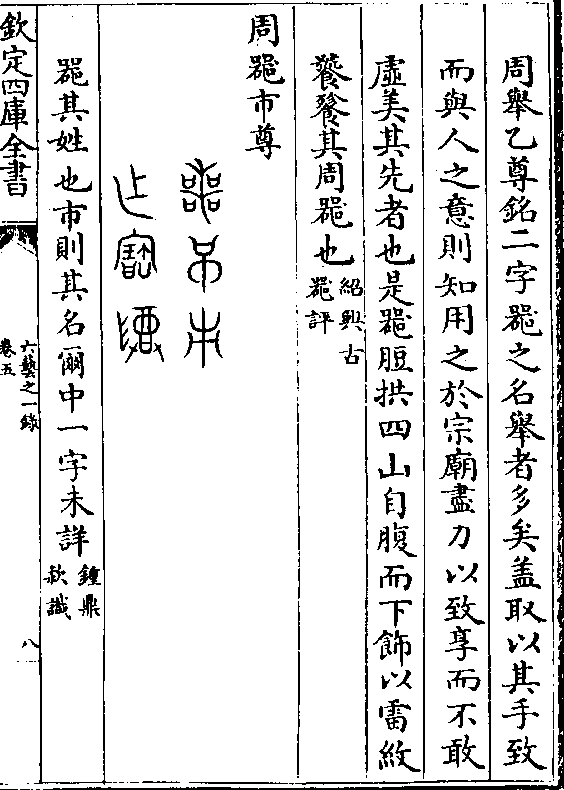 周舉乙尊銘二字噐之名舉者多矣葢取以其手致
而與人之意則知用之於宗廟盡力以致享而不敢
虛美其先者也是噐脰拱四山自腹而下飾以雷紋
饕餮其周噐也
紹興古
噐評
周噐市尊
噐其姓也市則其名爾中一字未詳
鍾鼎
款識
欽定四庫全書
六藝之一錄
卷五
八